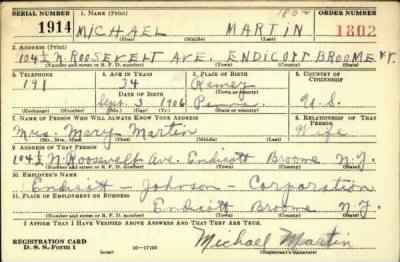 1802
SERIAL NUMBER 1. NAME (Print) ORDER NUMBER
1914 MICHAEL MARTIN 1802
(First) (Middle) (Last)
2. ADDRESS (Print)
104½ N. ROOSEVELT AVE. ENDICOTT BROOME N.Y.
(Number and street or R. F. D. number) (Town) (County) (State)
3. TELEPHONE 4. AGE IN YEARS 5. PLACE OF BIRTH 6. COUNTRY OF CITIZENSHIP
191 34
DATE OF BIRTH
Sept. 3, 1906 Penna. U.S.
(Mo.) (Day) (Yr.) (State or country)
7. NAME OF PERSON WHO WILL ALWAYS KNOW YOUR ADDRESS 8. RELATIONSHIP OF THAT PERSON
Mrs. Mary Martin Wife
(Mr., Mrs., Miss) (First) (Middle) (Last)
9. ADDRESS OF THAT PERSON
104½ N. Roosevelt Ave. Endicott Broome N.Y.
(Number and street or R. F. D. number) (Town) (County) (State)
10. EMPLOYER'S NAME
Endicott - Johnson - Corporation
11. PLACE OF EMPLOYMENT OR BUSINESS
Endicott Broome N.Y.
(Number and street or R. F. D. number) (Town) (County) (State)
I AFFIRM THAT I HAVE VERIFIED ABOVE ANSWERS AND THAT THEY ARE TRUE.
REGISTRATION CARD
D. S. S. Form 1 (over) 16-17105 Michael Martin
(Registrant's signature)